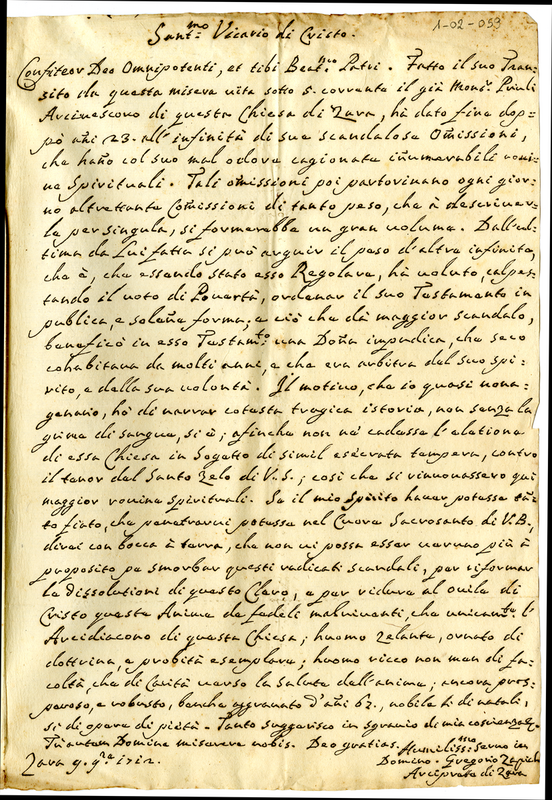 1-02-053
Sant.mo Vicario di Cristo.
Confiteor Deo Omnipotenti, et tibi Beat.mo Patri. Fatto il suo Tran-
sito da questa misera vita sotto 5. corrente il già Mons.r Priuli
Arcivescovo di questa Chiesa di Zara, hà dato fine dop-
pò añi 23. all'infinità di sue scandalose Omissioni,
che hano col suo mal odore cagionate iñumerabili roui-
ne Spirituali. Tali omissioni poi partorivano ogni gior-
no altrettante Comissioni di tanto peso, che à descriver-
le per singula, si formerebbe un gran volume. Dall'ul-
tima da Lui fatta si può arguir il peso d'altre infinite,
che è, che essendo stato esso Regolare, hà voluto, calpes-
tando il voto di Pouertà, ordenar il suo Testamento in
publica, e soleñe forma; e ciò che dà maggior scandalo,
beneficò in esso Testam.to una Doña impudica, che seco
cohabitava da molti anni, e che era arbitra del suo spi-
rito, e della sua volontà. Il motivo, che io quasi nona-
genario, hò di narrar cotesta tragica istoria, non senza la-
grime di sangue, si è; afinche non ne cadesse l'elettione
di essa Chiesa in Sogetto di simil esecrata tempera, contro
il tenor del Santo Zelo di V. S.; così che si rinnovassero qui
maggior rovine spirituali. Se il mio Spirito hauer potesse tan-
to fiato, che penetrarui potesse nel Cuore Sacrosanto di V.B.,
direi con bocca à terra, che non vi possa esser veruno più à
proposito per smorbar questi radicati scandali, per riformar
le dissolutioni di questo Clero, e per ridure al ouile di
Cristo queste Anime de fedeli malviventi, che unicam.te l'
Arcidiacono di questa Chiesa; huomo zelante, ornato di
dottrina, e probità esemplare; huomo ricco non men di fa-
coltà, che di Carità verso la salute dell'anime; ancora pros-
peroso, e robusto, benche aggravato d'añi 67., nobile sì di natali,
sì di opere di pietà. Tanto suggerisco in sgravio di mia coscienza.
Tu autem Domine miserere nobis. Deo gratias. Humiliss.mo Servo in
Zara 9. 1712. Domino. Gregorio
Arciprete di Zara